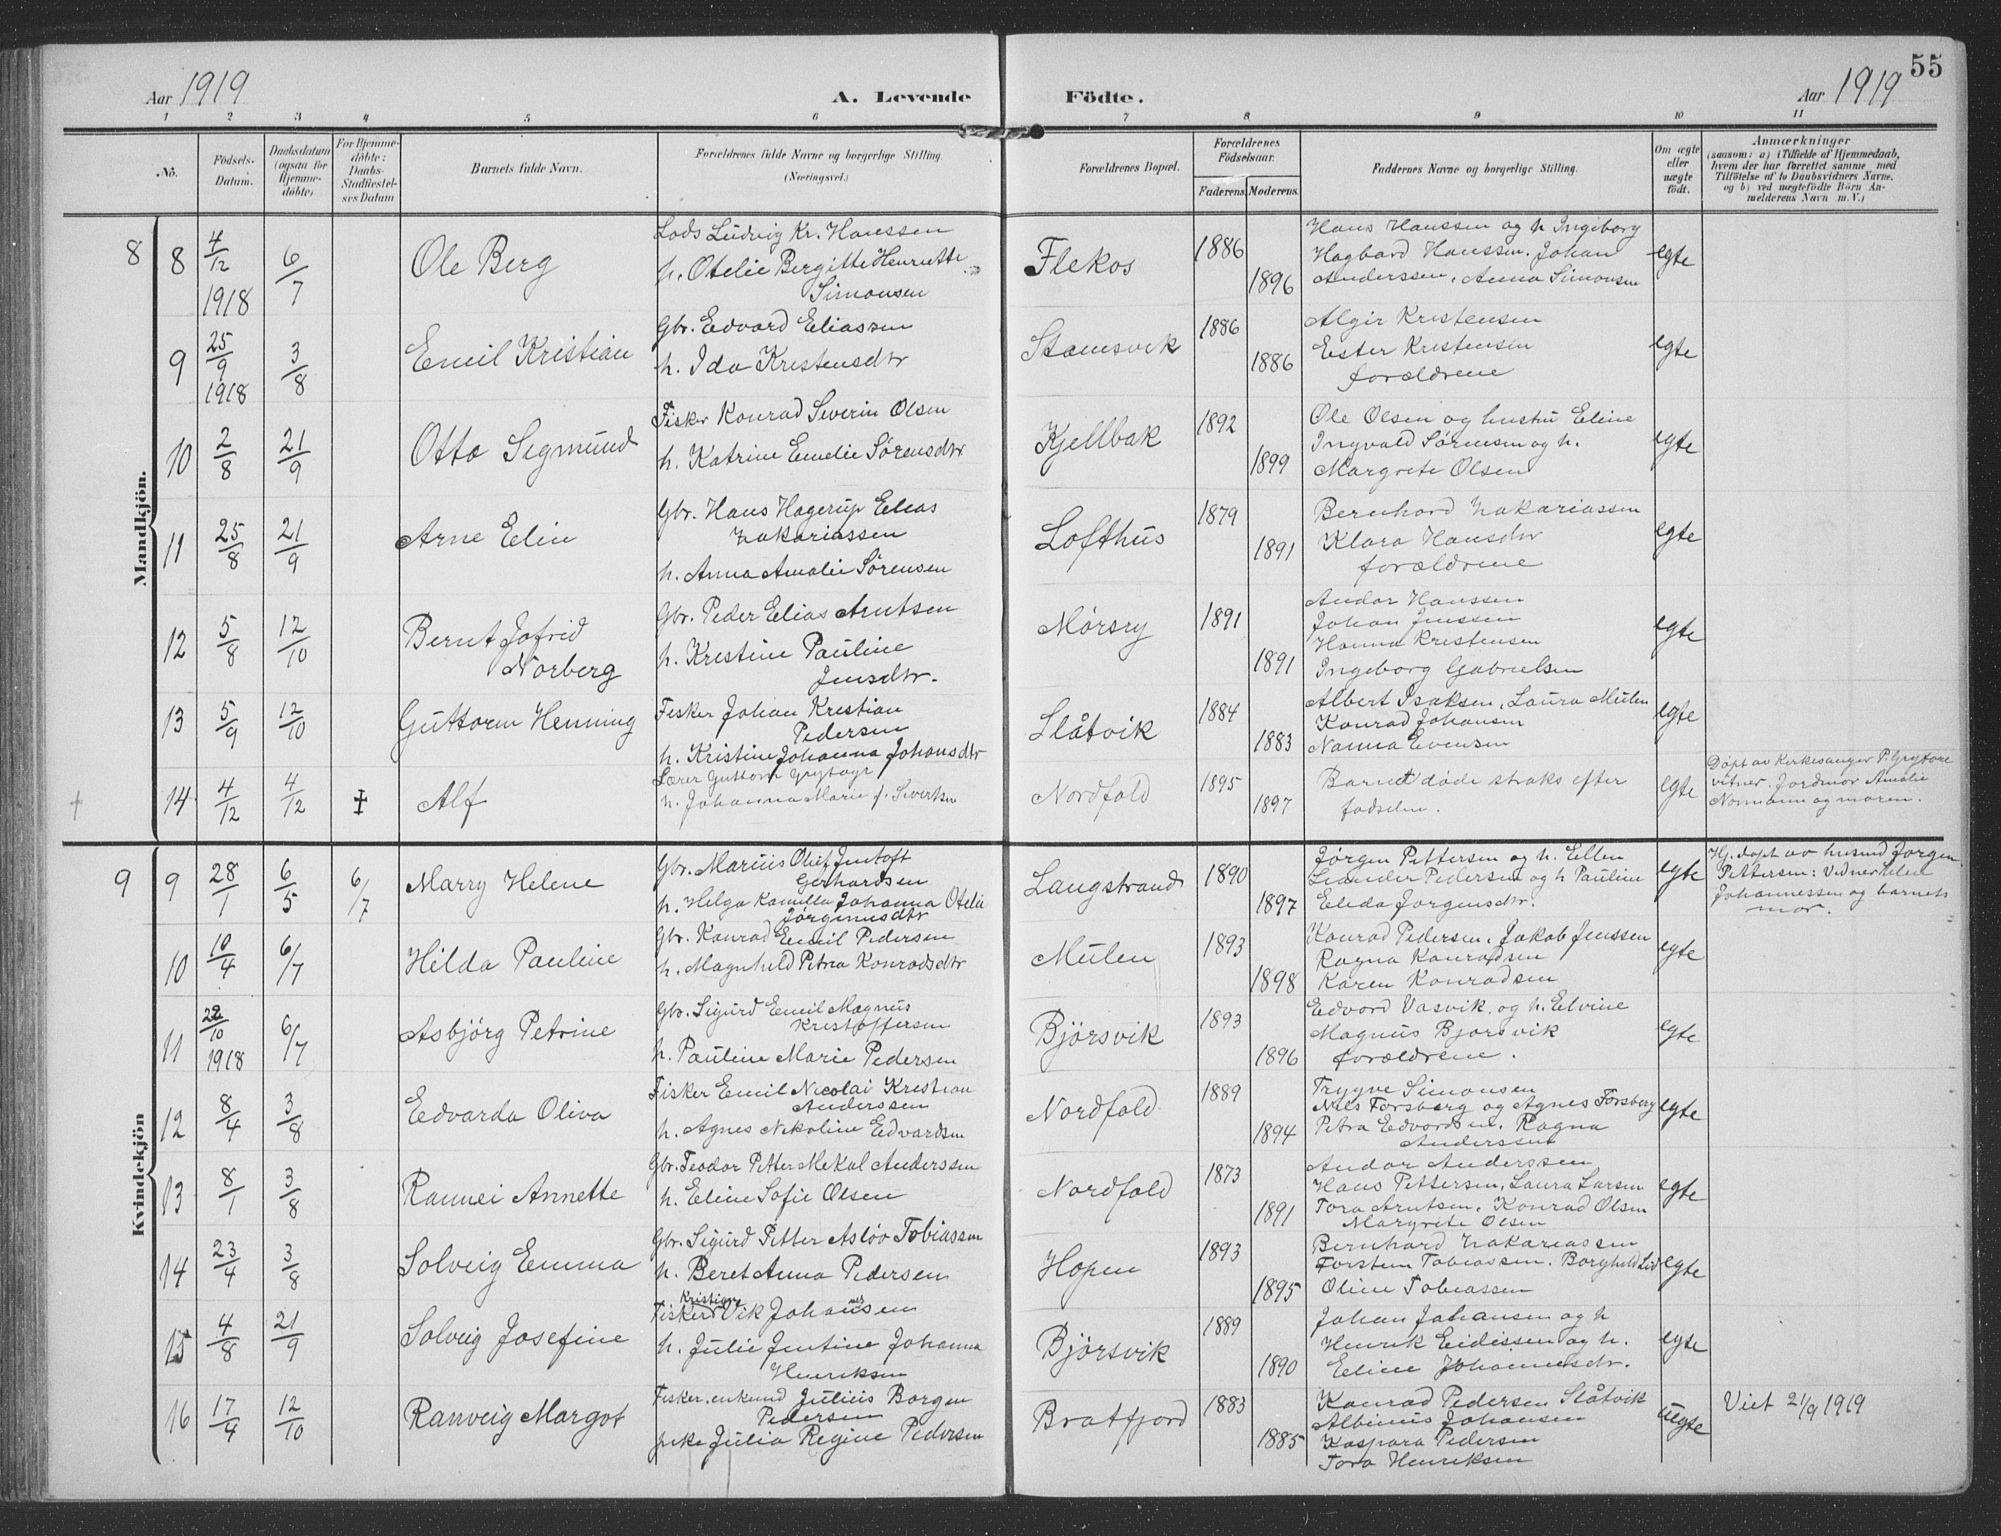 55
Aar 1919
A. Levende Födte.
Aar 1919
1 2 3 4 5 6 7 8 9 10 11
No.
Födsels-
Datum.
Daabsdatum
(ogsaa for
Hjemme-
döbte)
For Hjemme-
döbte:
Daabs-
Stadfæstel-
ses Datum
Barnets fulde Navn.
Forældrenes fulde Navne og borgerlige Stilling.
(Næringsvei.)
Forældrenes Bopæl.
Forældrenes
Födselsaar.
Faderens. Moderens.
Faddernes Navne og borgerlige Stilling.
Om ægte
eller
uægte
födt.
Anmærkninger
(saasom: a) i Tilfælde af Hjemmedaab,
hvem der har forrettet samme med
Tilföielse af to Daabsvidners Navne.
og b) ved uægtefödte Börn An-
melderens Navn m. V.)
Mandkjön.
8 8 4/12 1918 6/7 Ole Berg
Lods Ludvig Kr. Hanssen
h. Otelie Bergitte Henriette
Simonsen
Flekos 1886 1896
Hans Hanssen og h Ingiborg
Hagbard Hanssen. Johan
Anderssen. Anna Simonsen
egte
9 25/9 1918 3/8 Emil Kristian
Gbr. Edvard Eliassen
h. Ida Kristensdtr
Stamsvik 1886 1886
Algir Kristensen
Ester Kristensen
forældrene
egte
10 2/8 21/9 Otto Sigmund
Fisker Konrad Severin Olsen
h. Katrine Emelie Sørensdtr
Kjellbak 1892 1899
Ole Olsen og hustru Eline
Ingvald Sørensen og h.
Margrete Olsen
egte
11 25/8 21/9 Arne Elin
Gbr. Hans Hagerup Elias
Zakariassen
h. Anna Amalie Sørensen
Lofthus 1879 1891
Bernhard Zakariassen
Klara Hansdtr
forældrene
egte
12 5/8 12/10 Bernt Jofrid
Norberg
Gbr. Peder Elias Arntsen
h. Kristine Pauline
Jensdtr.
Mørsry 1891 1891
Andor Hanssen
Johan Jenssen
Hanna Kristensen
Ingeborg Gabrielsen
egte
13 5/9 12/10 Guttorm Henning
Fisker Johan Kristian
Pedersen
h. Kristine Johanna Johansdtr
Slåtvik 1884 1883
Albert Isaksen, Laura Mulen
Konrad Johansen
Nanna Evensen
egte
14 4/12 4/12 ‡ Alf
Lærer Guttorm Grytøyr
h. Johanna Marie f. Sivertsen
Nordfold 1895 1897
Barnet døde straks efter
fødselen.
egte
Døpt av Kirkesanger P. Grytøyr
vitner. Jordmor Amalie
Normann og moren.
Kvindekjön
9 9 28/1 6/5 6/7 Marry Helene
Gbr. Marius Oluf Jentoft
Gerhardsen
h. Helga Kamilla Johanna Otelie
Jørginusdtr
Langstrand 1890 1897
Jørgen Pettersen og h. Ellen
Leander Pedersen og h Pauline
Elida Jørgensdtr.
egte
Hj. døpt av husmd Jørgen
Pettersen: Vidner
Johannessen og barnets
mor.
10 10/4 6/7 Hilda Pauline
Gbr. Konrad Emil Pedersen
h. Magnhild Petra Konradsdtr
Mulen 1893 1898
Konrad Pedersen. Jakob Jenssen
Ragna Konradsen
Karen Konradsen
egte
11 22/10 1918 6/7 Asbjørg Petrine
Gbr. Sigurd Emil Magnus
Kristoffersen
h. Pauline Marie Pedersen
Bjørsvik 1893 1896
Edvard Vasvik, og h. Elvine
Magnus Bjørsvik
forældrene.
egte
12 8/4 3/8 Edvarda Oliva
Fisker Emil Nicolai Kristian
Anderssen
h. Agnes Nikoline Edvardsen
Nordfold 1889 1894
Trygve Simonsen
Nils Forsberg og Agnes Forsberg
Petra Edvardsen. Ragna
Anderssen
egte
13 8/1 3/8 Rannei Annette
Gbr. Teodor Petter Mekal Anderssen
h. Eline Sofie Olsen
Nordfold 1873 1891
Andor Anderssen
Hans Pettersen, Laura Larsen
Tora Arntsen. Konrad Olsen
Margrete Olsen
egte
14 23/4 3/8 Solveig Emma
Gbr. Sigurd Petter Asløv Tobiassen
h. Beret Anna Pedersen
Hopen 1893 1895
Bernhard Zakariassen
Torstein Tobiassen. Borghild Lid
Oline Tobiassen
egte
15 4/8 21/9 Solveig Josefine
Fisker Kristian Vik Johansen
h. Julie Jentine Johanna
Henriksen
Bjørsvik 1889 1890
Johan Johansen og h
Henrik Eidissen og h.
Eline Johannesdtr.
egte
16 17/4 12/10 Ranveig Margot
Fisker, enkemd Julius Borgen
Pedersen
pike Julia Regine Pedersen
Bratfjord 1883 1885
Konrad Pedersen Slåtvik
Albinus Johansen
Kaspara Pedersen
Tora Henriksen
uegte
Viet 21/9 1919